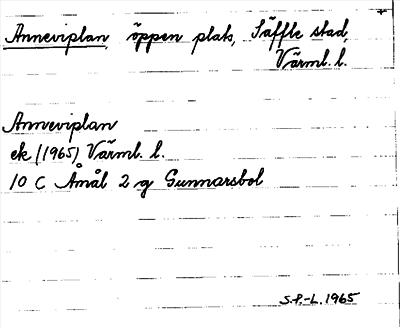 Anneviplan, öppen plats, Säffle stad,
Värml. l.
Anneviplan
ek (1965) Värml. l.
10 C Åmål 2 g Gunnarsbol
S.P.-L. 1965